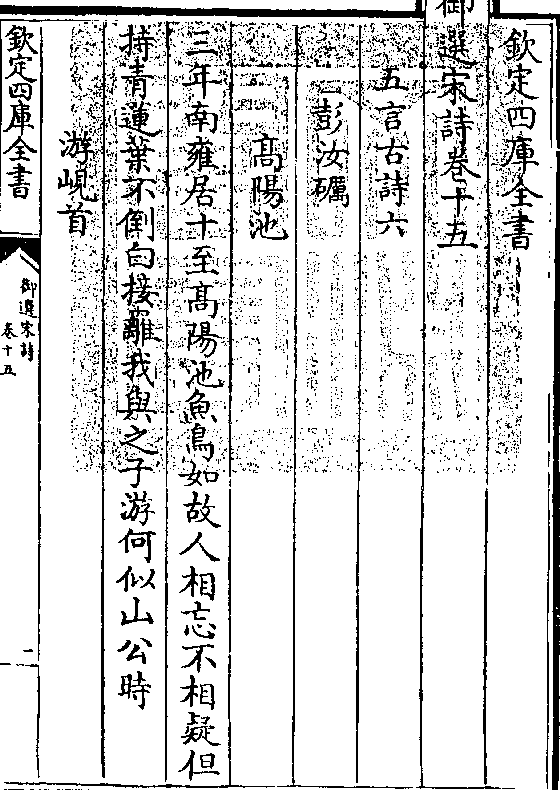 欽定四庫全書
御選宋詩卷十五
五言古詩六
彭汝礪
高陽池
三年南雍居十至高陽池魚鳥如故人相忘不相疑但
持青蓮葉不倒白接䍦我與之子游何似山公時
游峴首
欽定四庫全書
御選宋詩
卷十五
一